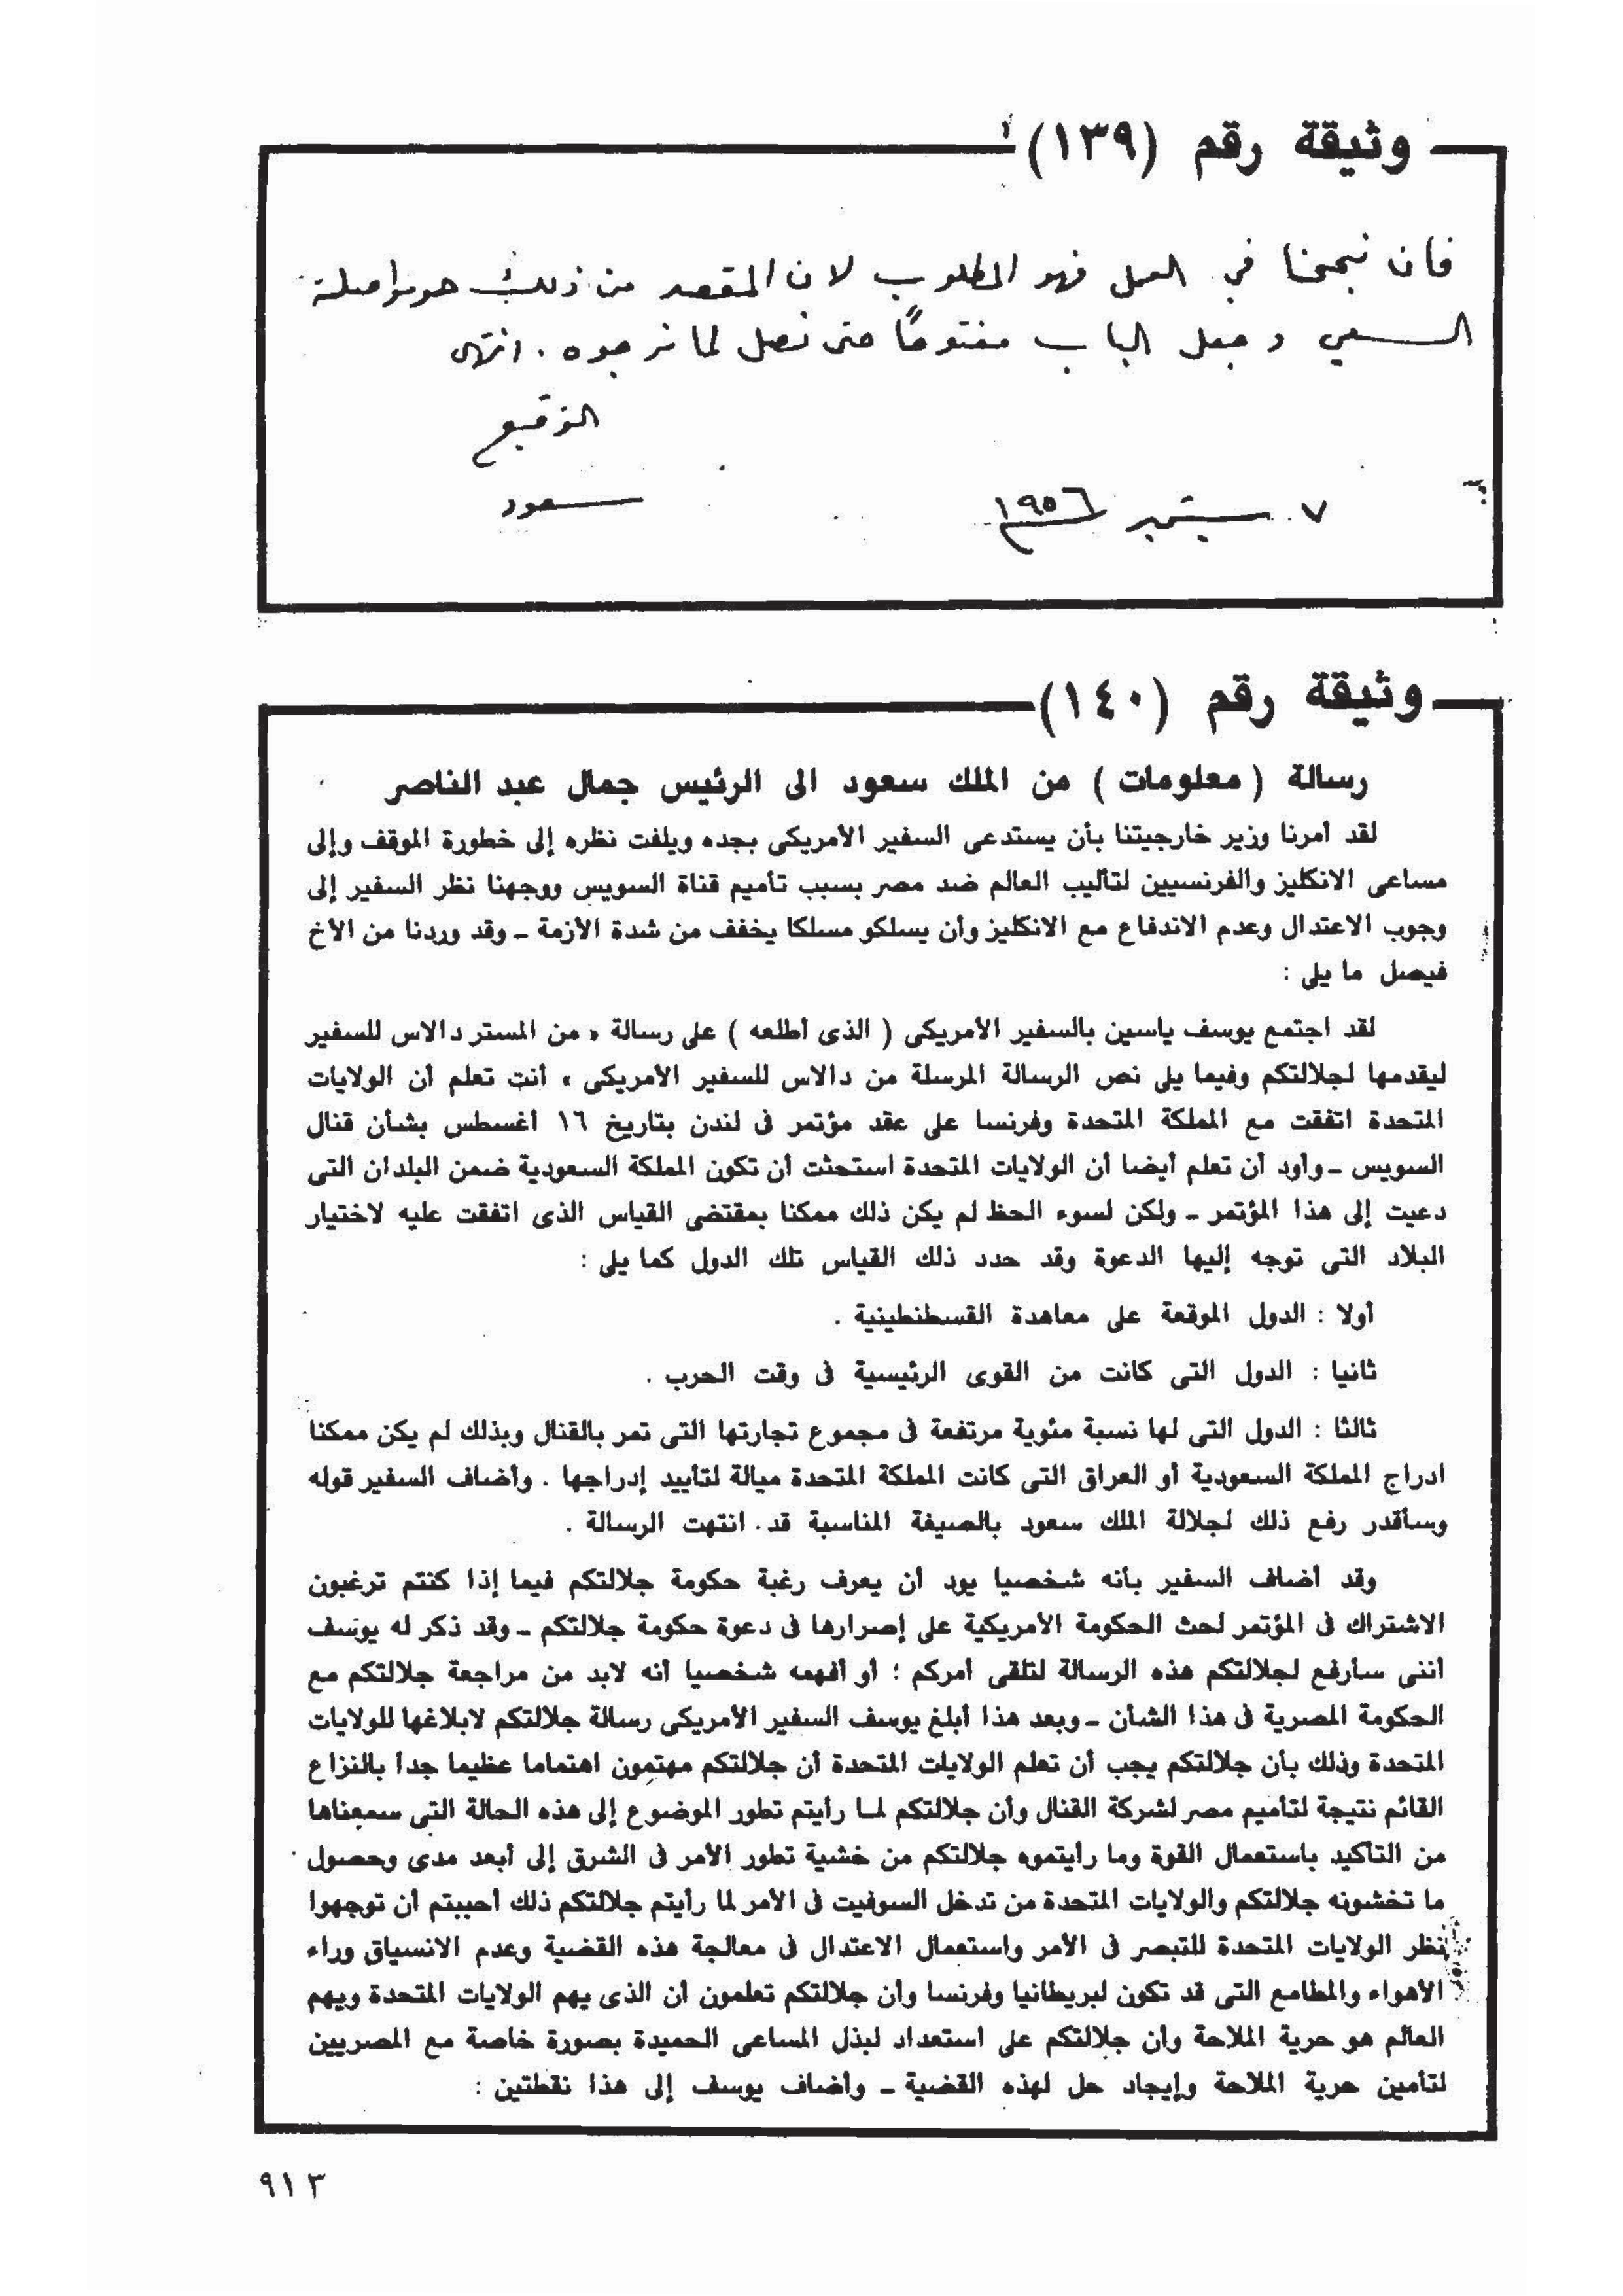 وثيقة رقم (١٣٩)
فان نجحنا في العمل فهو المطلوب لان المقصد من ذلك هو مواصلة
السعي وجعل الباب مفتوحًا حتى نصل لما نرجوه . انتهى
التوقيع
٧ سبتمبر ١٩٥٦
سعود
وثيقة رقم (١٤٠)
رسالة ( معلومات ) من الملك سعود الى الرئيس جمال عبد الناصر
لقد أمرنا وزير خارجيتنا بأن يستدعى السفير الأمريكى بجده ويلفت نظره إلى خطورة الموقف وإلى
مساعى الانكليز والفرنسيين لتأليب العالم ضد مصر بسبب تأميم قناة السويس ووجهنا نظر السفير إلى
وجوب الاعتدال وعدم الاندفاع مع الانكليز وأن يسلكو مسلكا يخفف من شدة الأزمة ـ وقد وردنا من الأخ
فيصل ما يلى :
لقد اجتمع يوسف ياسين بالسفير الأمريكى ( الذى أطلعه ) على رسالة « من المستر دالاس للسفير
ليقدمها لجلالتكم وفيما يلى نص الرسالة المرسلة من دالاس للسفير الأمريكى « أنت تعلم أن الولايات
المتحدة اتفقت مع المملكة المتحدة وفرنسا على عقد مؤتمر فى لندن بتاريخ ١٦ أغسطس بشأن قنال
السويس ـ وأود أن تعلم أيضا أن الولايات المتحدة استحثت أن تكون المملكة السعودية ضمن البلدان التى
دعيت إلى هذا المؤتمر ـ ولكن لسوء الحظ لم يكن ذلك ممكنا بمقتضى القياس الذى اتفقت عليه لاختيار
البلاد التى توجه إليها الدعوة وقد حدد ذلك القياس تلك الدول كما يلى :
أولا : الدول الموقعة على معاهدة القسطنطينية .
ثانيا : الدول التى كانت من القوى الرئيسية فى وقت الحرب .
ثالثا : الدول التى لها نسبة مئوية مرتفعة فى مجموع تجارتها التى تمر بالقنال وبذلك لم يكن ممكنا
ادراج المملكة السعودية أو العراق التى كانت المملكة المتحدة ميالة لتأييد إدراجها . وأضاف السفير قوله
وسأقدر رفع ذلك لجلالة الملك سعود بالصيغة المناسبة قد. انتهت الرسالة .
وقد أضاف السفير بأنه شخصيا يود أن يعرف رغبة حكومة جلالتكم فيما إذا كنتم ترغبون
الاشتراك فى المؤتمر لحث الحكومة الأمريكية على إصرارها فى دعوة حكومة جلالتكم ـ وقد ذكر له يوسف
أننى سأرفع لجلالتكم هذه الرسالة لتلقى أمركم ؛ أو أفهمه شخصيا أنه لابد من مراجعة جلالتكم مع
الحكومة المصرية فى هذا الشأن ـ وبعد هذا أبلغ يوسف السفير الأمريكى رسالة جلالتكم لابلاغها للولايات
المتحدة وذلك بأن جلالتكم يجب أن تعلم الولايات المتحدة أن جلالتكم مهتمون اهتماما عظيما جدا بالنزاع
القائم نتيجة لتأميم مصر لشركة القنال وأن جلالتكم لما رأيتم تطور الموضوع إلى هذه الحالة التى سمعناها
من التأكيد باستعمال القوة وما رأيتموه جلالتكم من خشية تطور الأمر فى الشرق إلى أبعد مدى وحصول
ما تخشونه جلالتكم والولايات المتحدة من تدخل السوفيت فى الأمر لما رأيتم جلالتكم ذلك أحببتم أن توجهوا
نظر الولايات المتحدة للتبصر فى الأمر واستعمال الاعتدال فى معالجة هذه القضية وعدم الانسياق وراء
الأهواء والمطامع التى قد تكون لبريطانيا وفرنسا وأن جلالتكم تعلمون أن الذى يهم الولايات المتحدة ويهم
العالم هو حرية الملاحة وأن جلالتكم على استعداد لبذل المساعى الحميدة بصورة خاصة مع المصريين
لتأمين حرية الملاحة وإيجاد حل لهذه القضية ـ وأضاف يوسف إلى هذا نقطتين :
٩١٣